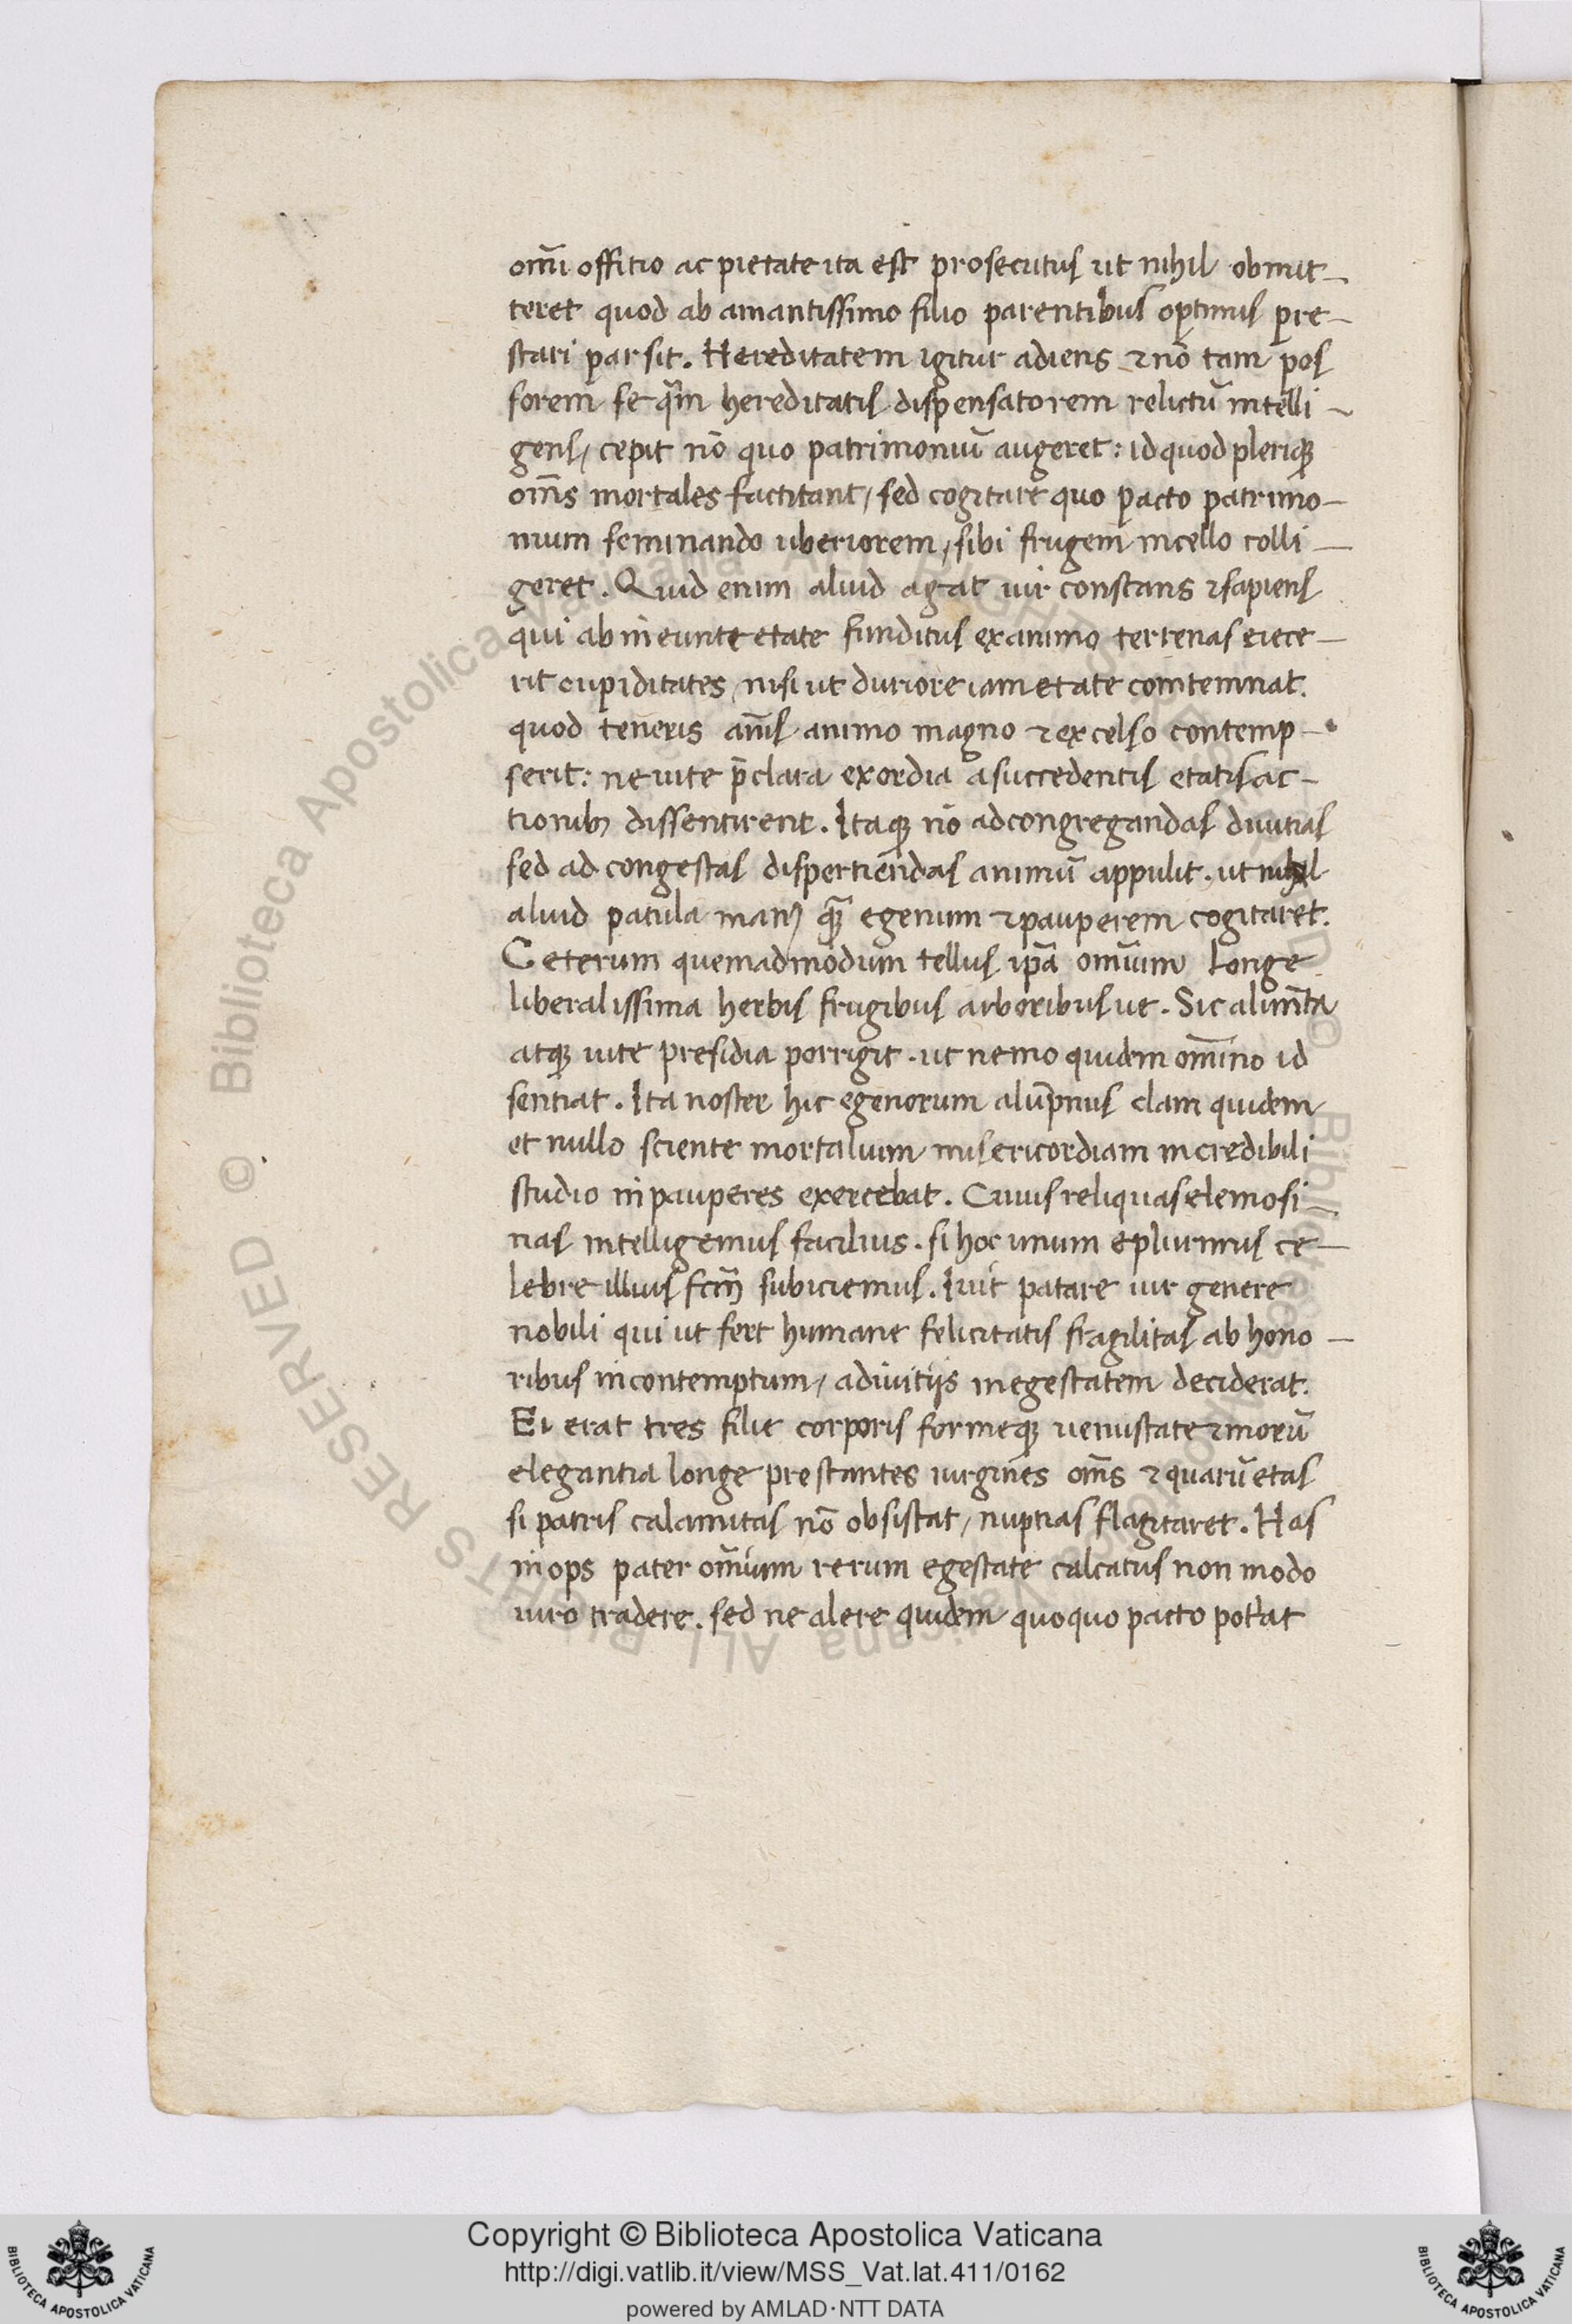 om̅i offitio ac pietate ita est prosecutus ut nihil obmit-
teret quod ab amantissimo filio parentibus optimis pre-
stari par sit. Hereditatem igitur adiens & nō tam pos
sorem se qͣm hereditatis dispensatorem relictū intelli-
gens, cepit nō quo patrimoniū augeret: id quod pleriqꝫ
om̅s mortales factitant, sed cogitare quo pacto patrimo-
nium seminando uberiorem, sibi frugem in cello colli-
geret. Quid enim aliud agat uir constans & sapiens
qui ab ineunte etate funditus ex animo terrenas eiece-
rit cupiditates, nisi ut duriore iam etate comtemnat.
quod teneris an̅is animo magno & excelso contemp-
serit: ne uite p̅clara exordia a succedentis etatis ac-
tionibꝫ dissentirent. Itaqꝫ nō ad congregandas diuitias
sed ad congestas dispertiendas animū appulit. ut nihil
aliud patula manꝰ qꝫ̄ egenum & pauperem cogitaret.
Ceterum quemadmodum tellus ip̅a om̅ium longe
liberalissima herbis frugibus arboribus ut. Sic alim̅ta
atqꝫ uite presidia porrigit. ut nemo quidem om̅ino id
sentiat. Ita noster hic egenorum alūpnus clam quidem
et nullo sciente mortalium misericordiam incredibili
studio in pauperes exercebat. Cuius reliquas elemosi-
nas intelligemus facilius. si hoc unum e plurimis ce-
lebre illius fcm̅ subiciemus. Iuit patare uir genere
nobili qui ut fert humane felicitatis fragilitas ab hono-
ribus in contemptum, adiuitijs in egestatem deciderat.
Ei erat tres filie corporis formeqꝫ uenustate & morū
elegantia longe prestantes uirgines om̅s & quarū etas
si patris calamitas nō obsistat, nuptias flagitaret. Has
inops pater om̅ium rerum egestate calcatus non modo
uiro tradere. sed ne alere quidem quoquo pacto pot'at
Copyright © Biblioteca Apostolica Vaticana
http://digi.vatlib.it/view/MSS_Vat.lat.411/0162
powered by AMLAD·NTT DATA